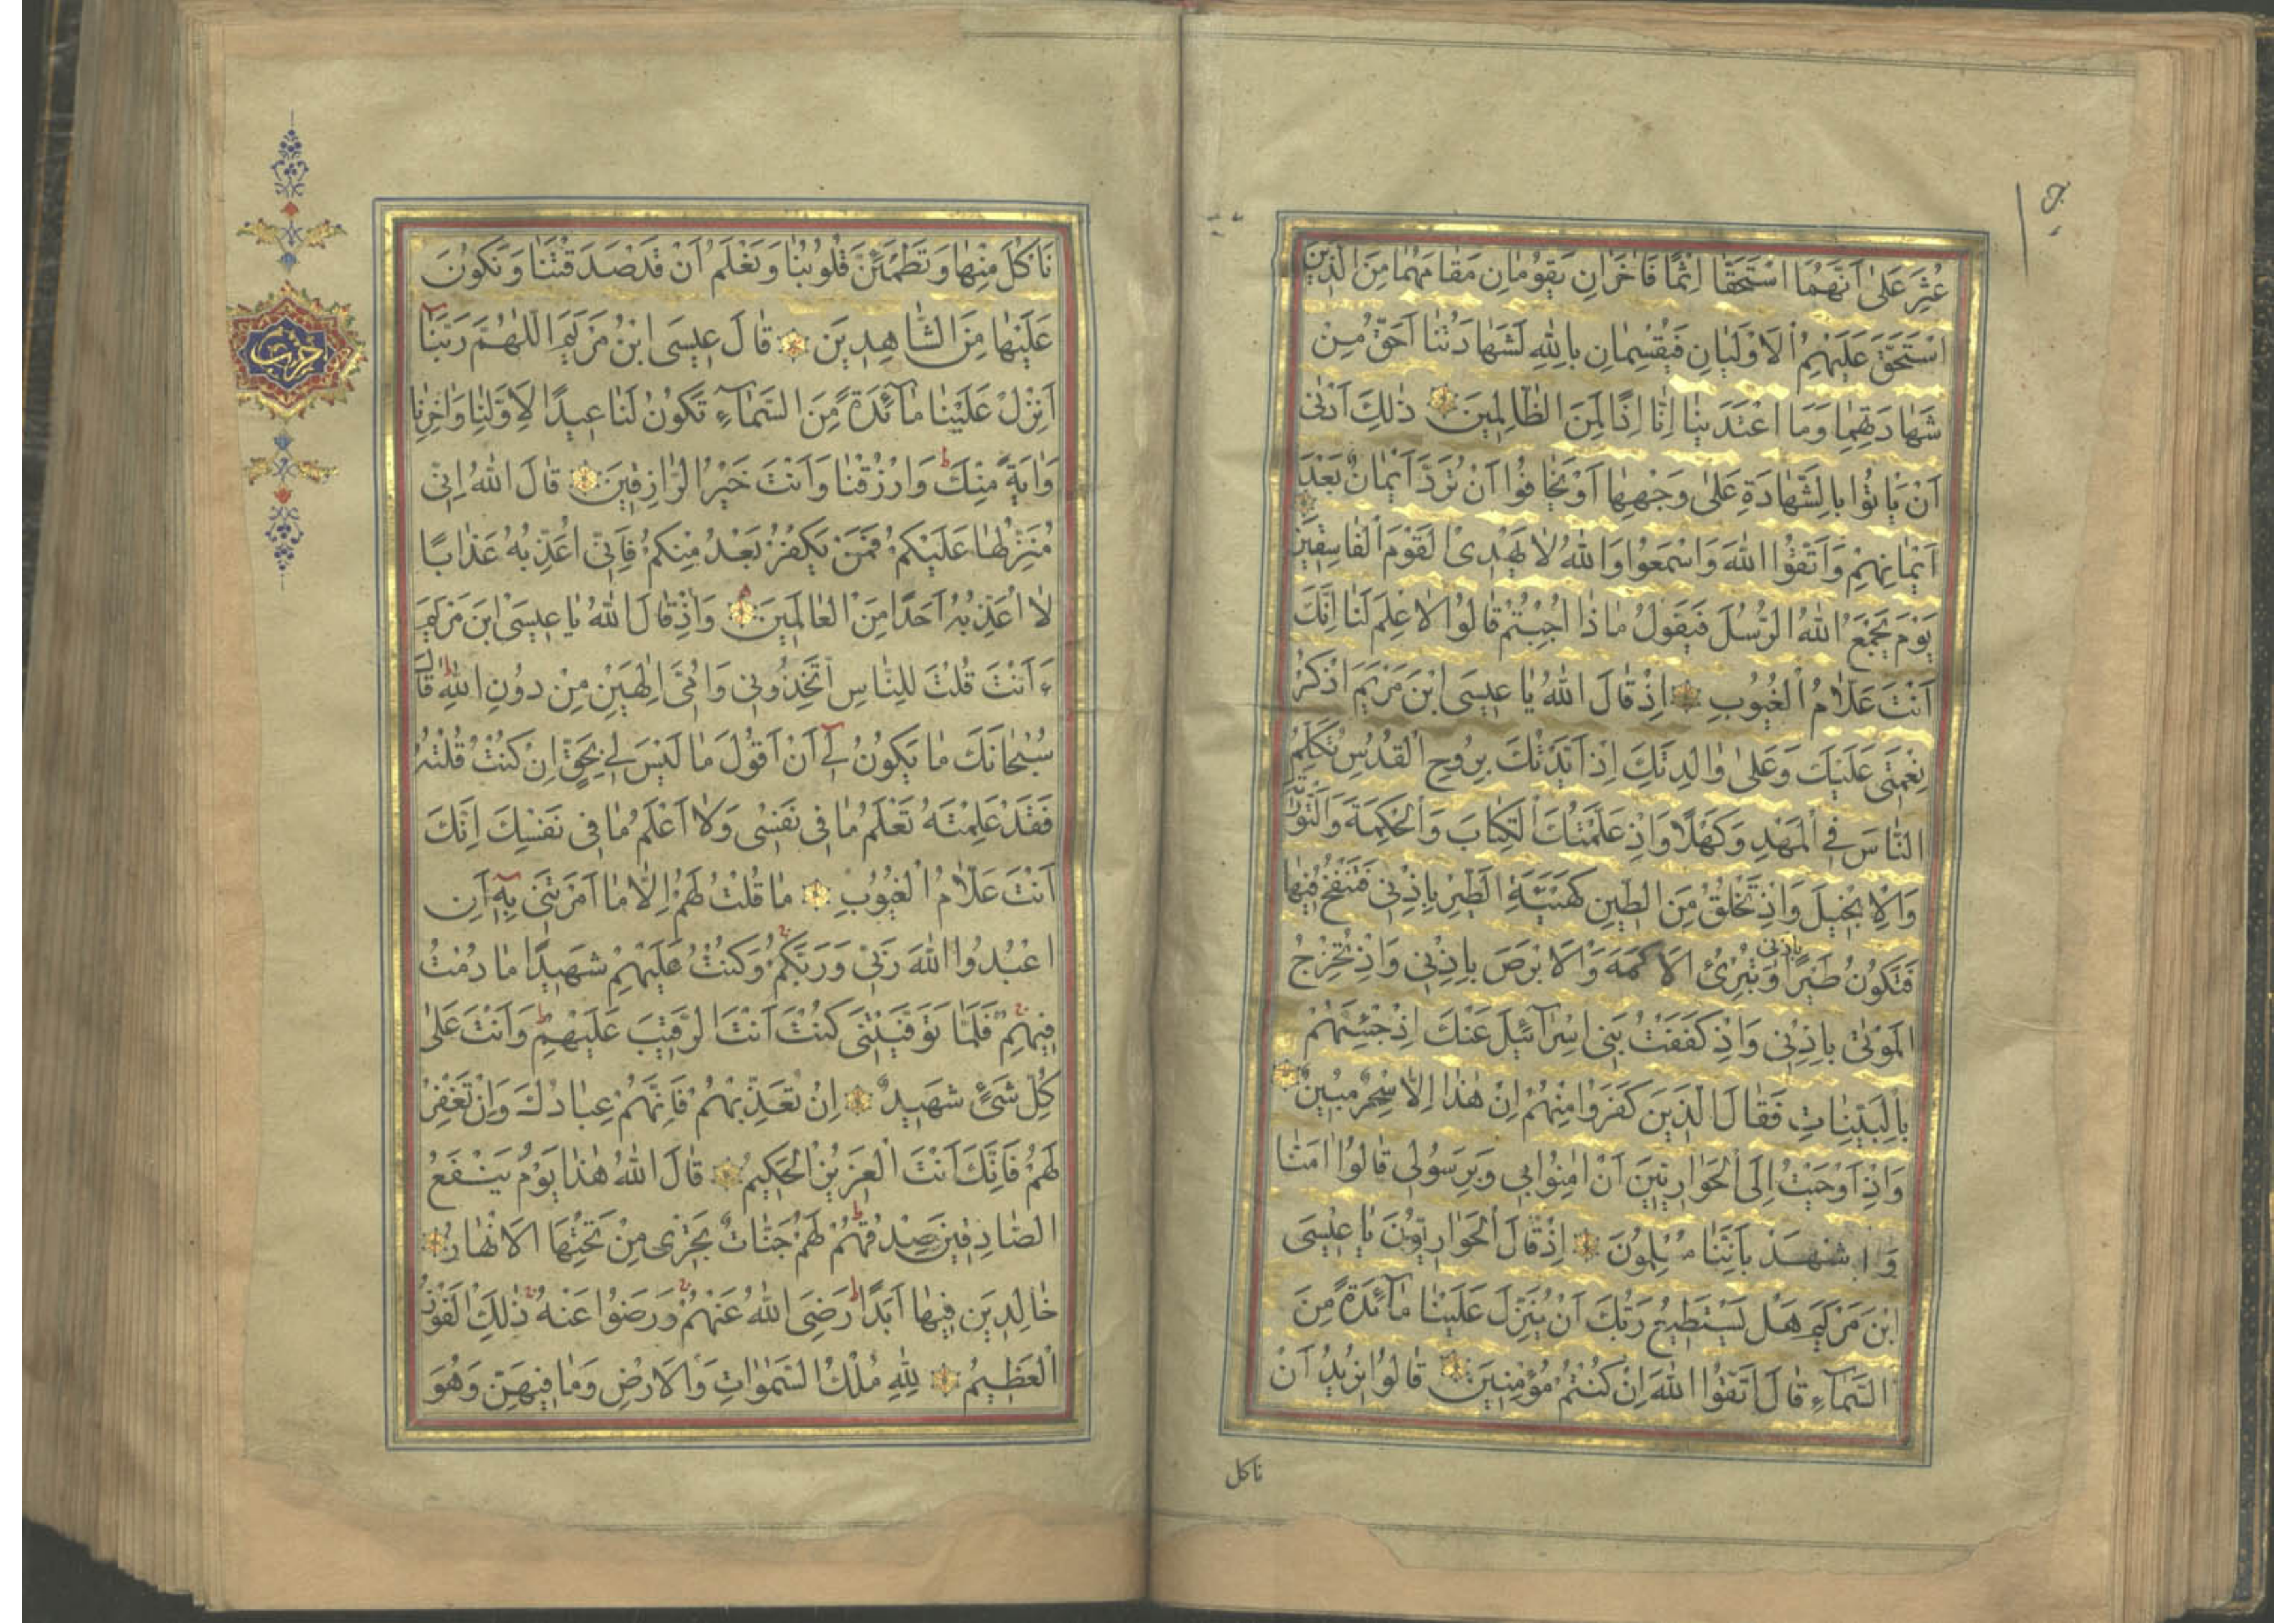 عُثِرَ عَلىٰ اَنَّهُمَا اسْتَحَقّٰا اِثْمًا فَاٰخَرٰانِ يَقُومٰانِ مَقٰامَهُمٰا مِنَ الَّذِينَ
اسْتَحَقَّ عَلَيْهِمُ الْاَوْلَيٰانِ فَيُقْسِمٰانِ بِاللّٰهِ لَشَهٰادَتُنٰا اَحَقُّ مِنْ
شَهٰادَتِهِمٰا وَمَا اعْتَدَيْنٰا اِنّٰا اِذًا لَمِنَ الظّٰالِمِينَ ذٰلِكَ اَدْنٰى
اَنْ يَاْتُوا بِالشَّهٰادَةِ عَلىٰ وَجْهِهٰا اَوْ يَخٰافُوا اَنْ تُرَدَّ اَيْمٰانٌ بَعْدَ
اَيْمٰانِهِمْ وَاتَّقُوا اللّٰهَ وَاسْمَعُوا وَاللّٰهُ لٰا يَهْدِى الْقَوْمَ الْفٰاسِقِينَ
يَوْمَ يَجْمَعُ اللّٰهُ الرُّسُلَ فَيَقُولُ مٰا ذٰا اُجِبْتُمْ قٰالُوا لٰا عِلْمَ لَنٰا اِنَّكَ
اَنْتَ عَلّٰامُ الْغُيُوبِ اِذْ قٰالَ اللّٰهُ يٰا عِيسَى ابْنَ مَرْيَمَ اذْكُرْ
نِعْمَتِى عَلَيْكَ وَعَلىٰ وٰالِدَتِكَ اِذْ اَيَّدْتُكَ بِرُوحِ الْقُدُسِ تُكَلِّمُ
النّٰاسَ فِى الْمَهْدِ وَكَهْلًا وَاِذْ عَلَّمْتُكَ الْكِتٰابَ وَالْحِكْمَةَ وَالتَّوْرٰيةَ
وَالْاِنْجِيلَ وَاِذْ تَخْلُقُ مِنَ الطِّينِ كَهَيْئَةِ الطَّيْرِ بِاِذْنِى فَتَنْفُخُ فِيهٰا
فَتَكُونُ طَيْرًا بِاِذْنِى وَتُبْرِئُ الْاَكْمَهَ وَالْاَبْرَصَ بِاِذْنِى وَاِذْ تُخْرِجُ
الْمَوْتٰى بِاِذْنِى وَاِذْ كَفَفْتُ بَنِى اِسْرٰآئِيلَ عَنْكَ اِذْ جِئْتَهُمْ
بِالْبَيِّنٰاتِ فَقٰالَ الَّذِينَ كَفَرُوا مِنْهُمْ اِنْ هٰذٰا اِلّٰا سِحْرٌ مُبِينٌ
وَاِذْ اَوْحَيْتُ اِلَى الْحَوٰارِيِّينَ اَنْ اٰمِنُوا بِى وَبِرَسُولِى قٰالُوا اٰمَنّٰا
وَاشْهَدْ بِاَنَّنٰا مُسْلِمُونَ اِذْ قٰالَ الْحَوٰارِيُّونَ يٰا عِيسَى
ابْنَ مَرْيَمَ هَلْ يَسْتَطِيعُ رَبُّكَ اَنْ يُنَزِّلَ عَلَيْنٰا مٰآئِدَةً مِنَ
السَّمٰآءِ قٰالَ اتَّقُوا اللّٰهَ اِنْ كُنْتُمْ مُؤْمِنِينَ قٰالُوا نُرِيدُ اَنْ
ناكل
نَاْكُلَ مِنْهٰا وَتَطْمَئِنَّ قُلُوبُنٰا وَنَعْلَمَ اَنْ قَدْ صَدَقْتَنٰا وَنَكُونَ
عَلَيْهٰا مِنَ الشّٰاهِدِينَ قٰالَ عِيسَى ابْنُ مَرْيَمَ اللّٰهُمَّ رَبَّنٰا
اَنْزِلْ عَلَيْنٰا مٰآئِدَةً مِنَ السَّمٰآءِ تَكُونُ لَنٰا عِيدًا لِاَوَّلِنٰا وَاٰخِرِنٰا
وَاٰيَةً مِنْكَ وَارْزُقْنٰا وَاَنْتَ خَيْرُ الرّٰازِقِينَ قٰالَ اللّٰهُ اِنِّى
مُنَزِّلُهٰا عَلَيْكُمْ فَمَنْ يَكْفُرْ بَعْدُ مِنْكُمْ فَاِنِّى اُعَذِّبُهُ عَذٰابًا
لٰا اُعَذِّبُهُ اَحَدًا مِنَ الْعٰالَمِينَ وَاِذْ قٰالَ اللّٰهُ يٰا عِيسَى ابْنَ مَرْيَمَ
ءَاَنْتَ قُلْتَ لِلنّٰاسِ اتَّخِذُونِى وَاُمِّىَ اِلٰهَيْنِ مِنْ دُونِ اللّٰهِ قٰالَ
سُبْحٰانَكَ مٰا يَكُونُ لِى اَنْ اَقُولَ مٰا لَيْسَ لِى بِحَقٍّ اِنْ كُنْتُ قُلْتُهُ
فَقَدْ عَلِمْتَهُ تَعْلَمُ مٰا فِى نَفْسِى وَلٰا اَعْلَمُ مٰا فِى نَفْسِكَ اِنَّكَ
اَنْتَ عَلّٰامُ الْغُيُوبِ مٰا قُلْتُ لَهُمْ اِلّٰا مٰا اَمَرْتَنِى بِهِ اَنِ
اعْبُدُوا اللّٰهَ رَبِّى وَرَبَّكُمْ وَكُنْتُ عَلَيْهِمْ شَهِيدًا مٰا دُمْتُ
فِيهِمْ فَلَمّٰا تَوَفَّيْتَنِى كُنْتَ اَنْتَ الرَّقِيبَ عَلَيْهِمْ وَاَنْتَ عَلىٰ
كُلِّ شَىْءٍ شَهِيدٌ اِنْ تُعَذِّبْهُمْ فَاِنَّهُمْ عِبٰادُكَ وَاِنْ تَغْفِرْ
لَهُمْ فَاِنَّكَ اَنْتَ الْعَزِيزُ الْحَكِيمُ قٰالَ اللّٰهُ هٰذٰا يَوْمُ يَنْفَعُ
الصّٰادِقِينَ صِدْقُهُمْ لَهُمْ جَنّٰاتٌ تَجْرِى مِنْ تَحْتِهَا الْاَنْهٰارُ
خٰالِدِينَ فِيهٰا اَبَدًا رَضِىَ اللّٰهُ عَنْهُمْ وَرَضُوا عَنْهُ ذٰلِكَ الْفَوْزُ
الْعَظِيمُ لِلّٰهِ مُلْكُ السَّمٰوٰاتِ وَالْاَرْضِ وَمٰا فِيهِنَّ وَهُوَ
حزب